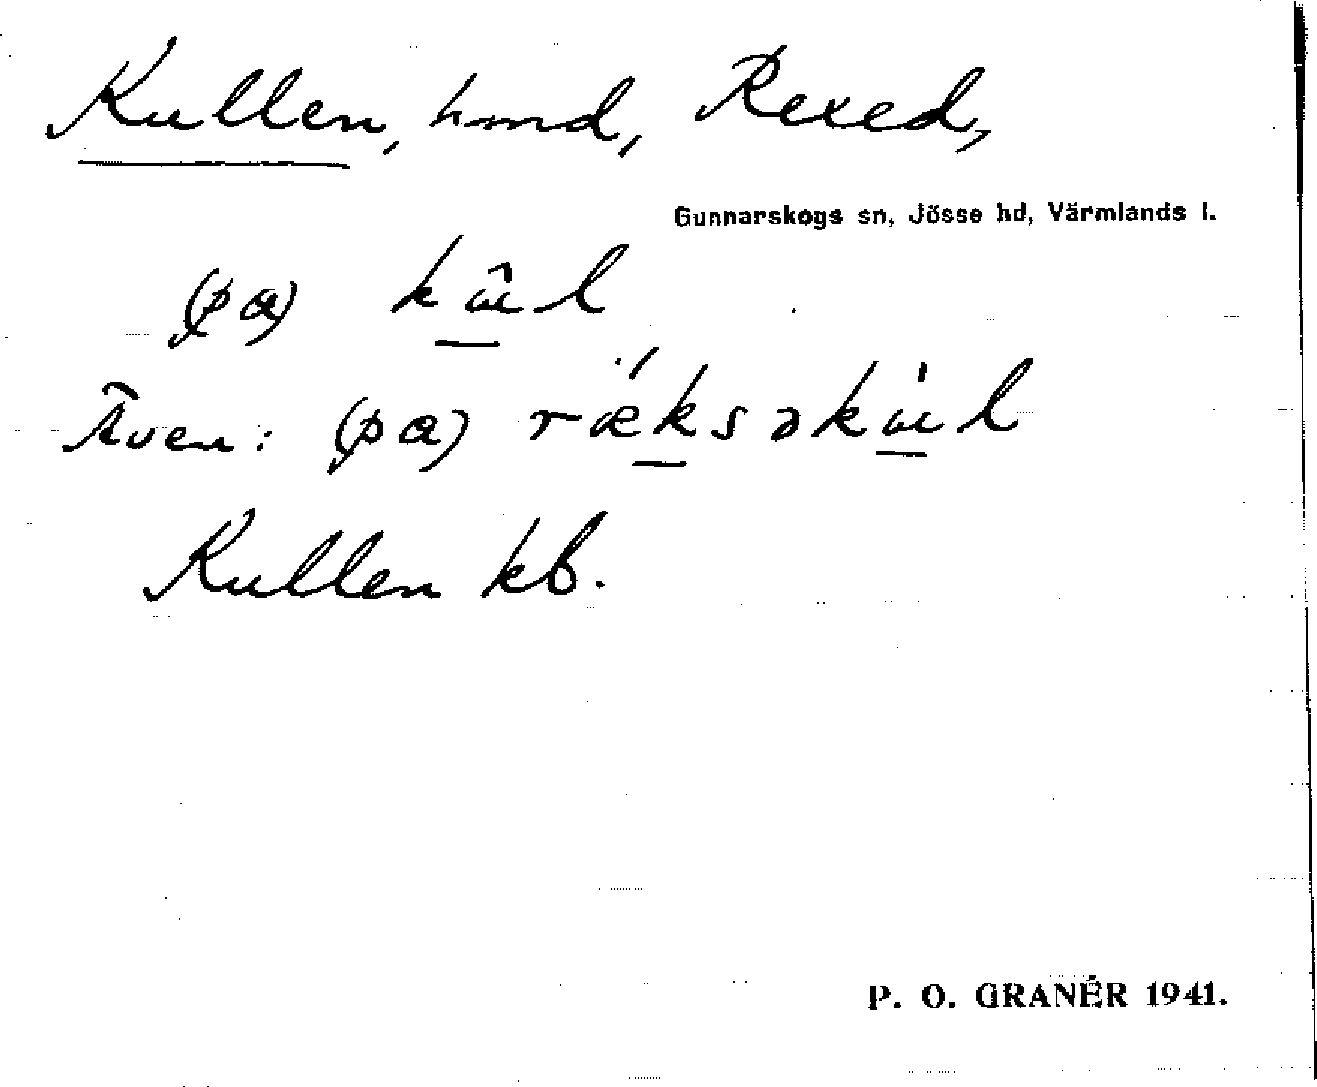 Kullen, hmd, Rexed,
Gunnarskogs sn, Jösse hd, Värmlands l.
(pɑ) kɯ̂l
Även: (pɑ) rǽksəkɯ̀l
Kullen kb.
P. O. GRANÉR 1941.